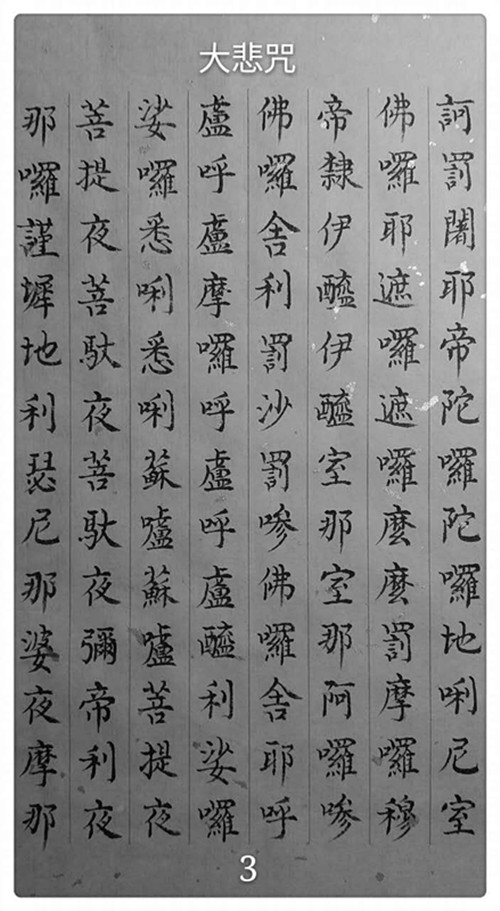 大悲咒
訶罰闍耶帝陀囉陀囉地唎尼室
佛囉耶遮囉遮囉麼麼罰摩囉穆
帝隸伊醯伊醯室那室那阿囉嘇
佛囉舍利罰沙罰嘇佛囉舍耶呼
盧呼盧摩囉呼盧呼盧醯利娑囉
娑囉悉唎悉唎蘇嚧蘇嚧菩提夜
菩提夜菩馱夜菩馱夜彌帝利夜
那囉謹墀地利瑟尼那婆夜摩那
3